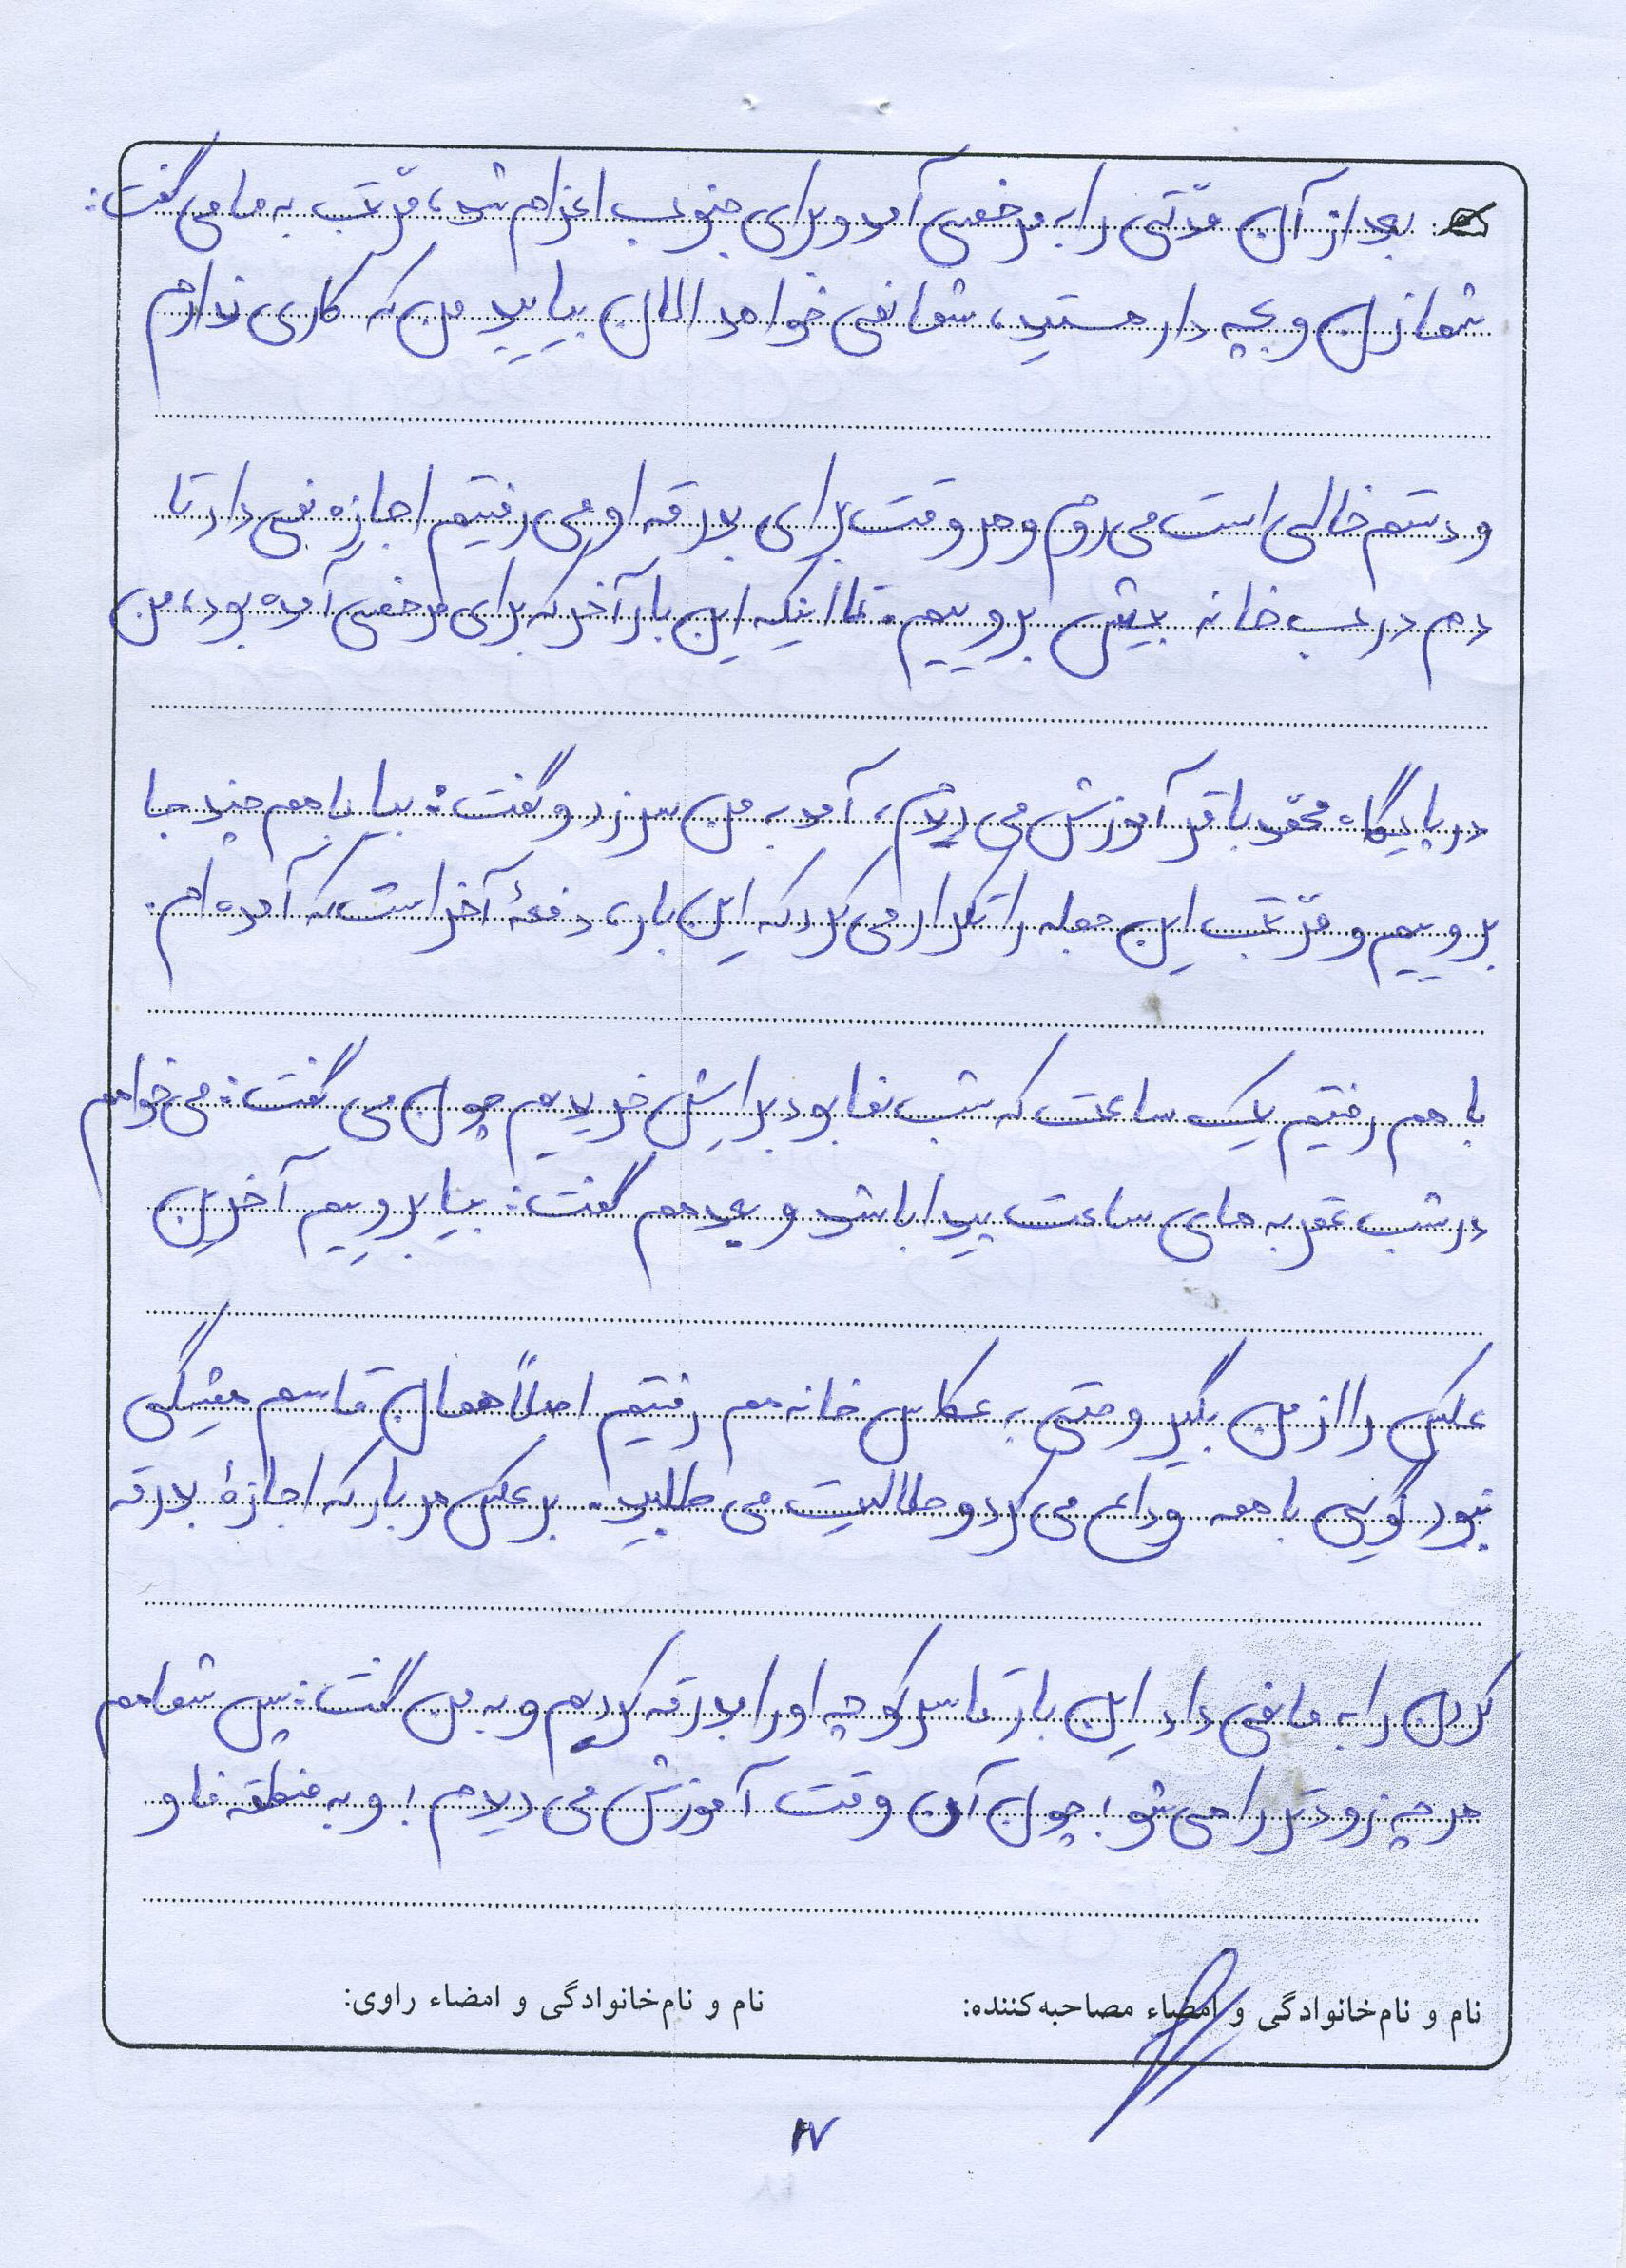 بعد از آن مدّتی را به مرخصی آمد و برای جنوب اعزام شد، مرتّب به ما می گفت:
شما زن و بچه دار هستید، شما نمی خواهد الان بیایید من که کاری ندارم
و دستم خالی است می روم و هر وقت برای بدرقه او می رفتیم اجازه نمی داد تا
دم درب خانه بیش برویم. تا اینکه این بار آخر که برای مرخصی آمده بود، من
در پایگاه محمّد باقر آموزش می دیدم، آمد به من سر زد و گفت: بیا با هم چند جا
برویم و مرّتب این جمله را تکرار می کرد که این بار، دفعۀ آخر است که آمده ام.
با هم رفتیم یک ساعت که شب نما بود برایش خریدیم چون می گفت: می خواهم
در شب عقربه های ساعت پیدا باشد و بعد هم گفت: بیا برویم آخرین
عکس را از من بگیر وقتی به عکاس خانه هم رفتیم اصلاً همان قاسم همیشگی
نبود گویی با همه وداع می کرد و حلالیت می طلبید. برعکس هر بار که اجازۀ بدرقه
کردن را به ما نمی داد این بار تا سر کوچه او را بدرقه کردیم و به من گفت: پس شما هم
هر چه زودتر راهی شو! چون آن وقت آموزش می دیدم! و به منطقه فاو
نام و نام‌خانوادگی و امضاء مصاحبه‌کننده: نام و نام‌خانوادگی و امضاء راوی:
۱۷